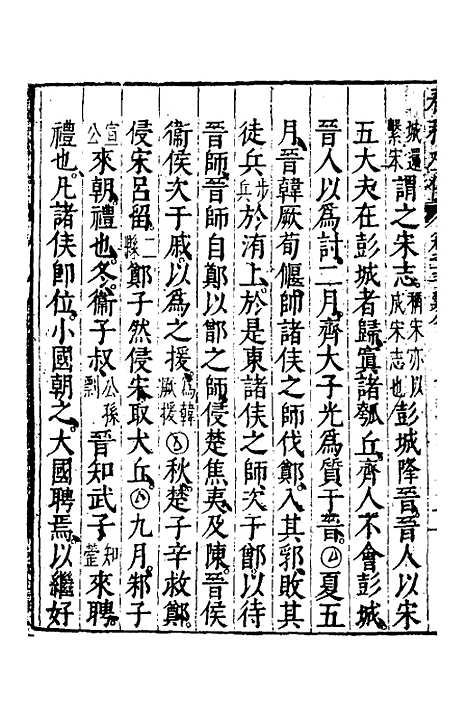 城還繫宋謂之宋志稱宋亦以成宋志也彭城降晉晉人以宋
五大夫在彭城者歸寘諸瓠丘齊人不會彭城
晉人以爲討二月齊大子光爲質于晉○夏五
月晉韓厥荀偃帥諸侯之師伐鄭入其郛敗其
徒兵步兵於洧上於是東諸侯之師次于鄫以待
晉師晉師自鄭以鄫之師侵楚焦夷及陳晉侯
衞侯次于戚以爲之援爲韓厥援○秋楚子辛救鄭
侵宋呂留二縣鄭子然侵宋取犬丘○九月邾子
宣公來朝禮也冬衞子叔公孫剽晉知武子知罃來聘
禮也凡諸侯卽位小國朝之大國聘焉以繼好